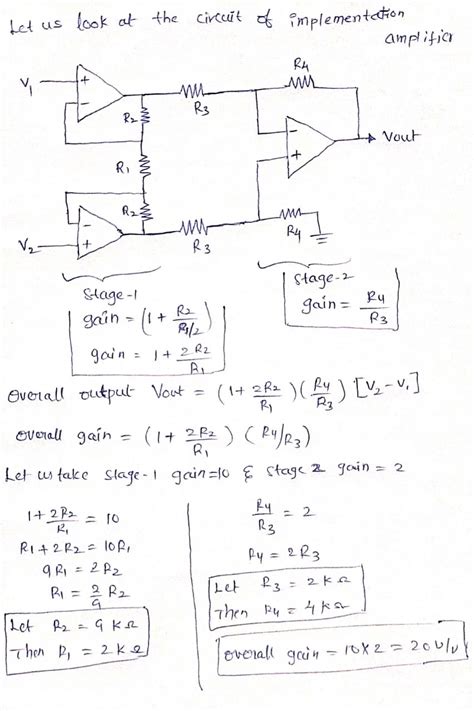 Let us look at the circuit of implementation
amplifier
V1
+
-
R2
R1
R2
-
V2
+
R3
R3
R4
-
+
Vout
R4
Stage-1
gain = (1 + R2/R1/2)
gain = 1 + 2R2/R1
Stage-2
gain = R4/R3
Overall output Vout = (1+ 2R2/R1) (R4/R3) [V2 - V1]
Overall gain = (1+ 2R2/R1) (R4/R3)
Let us take stage-1 gain=10 & stage 2 gain = 2
1+ 2R2/R1 = 10
R1+2R2 = 10R1
9R1 = 2R2
R1 = 2/9 R2
Let R2 = 9 KΩ
Then R1 = 2KΩ
R4/R3 = 2
R4 = 2R3
Let R3 = 2KΩ
Then R4 = 4KΩ
Overall gain = 10x2 = 20 V/V